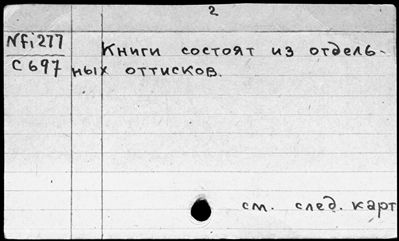 2
Nfi277 Книги состоят из отдель-
C697 ных оттисков.
см. след. карт